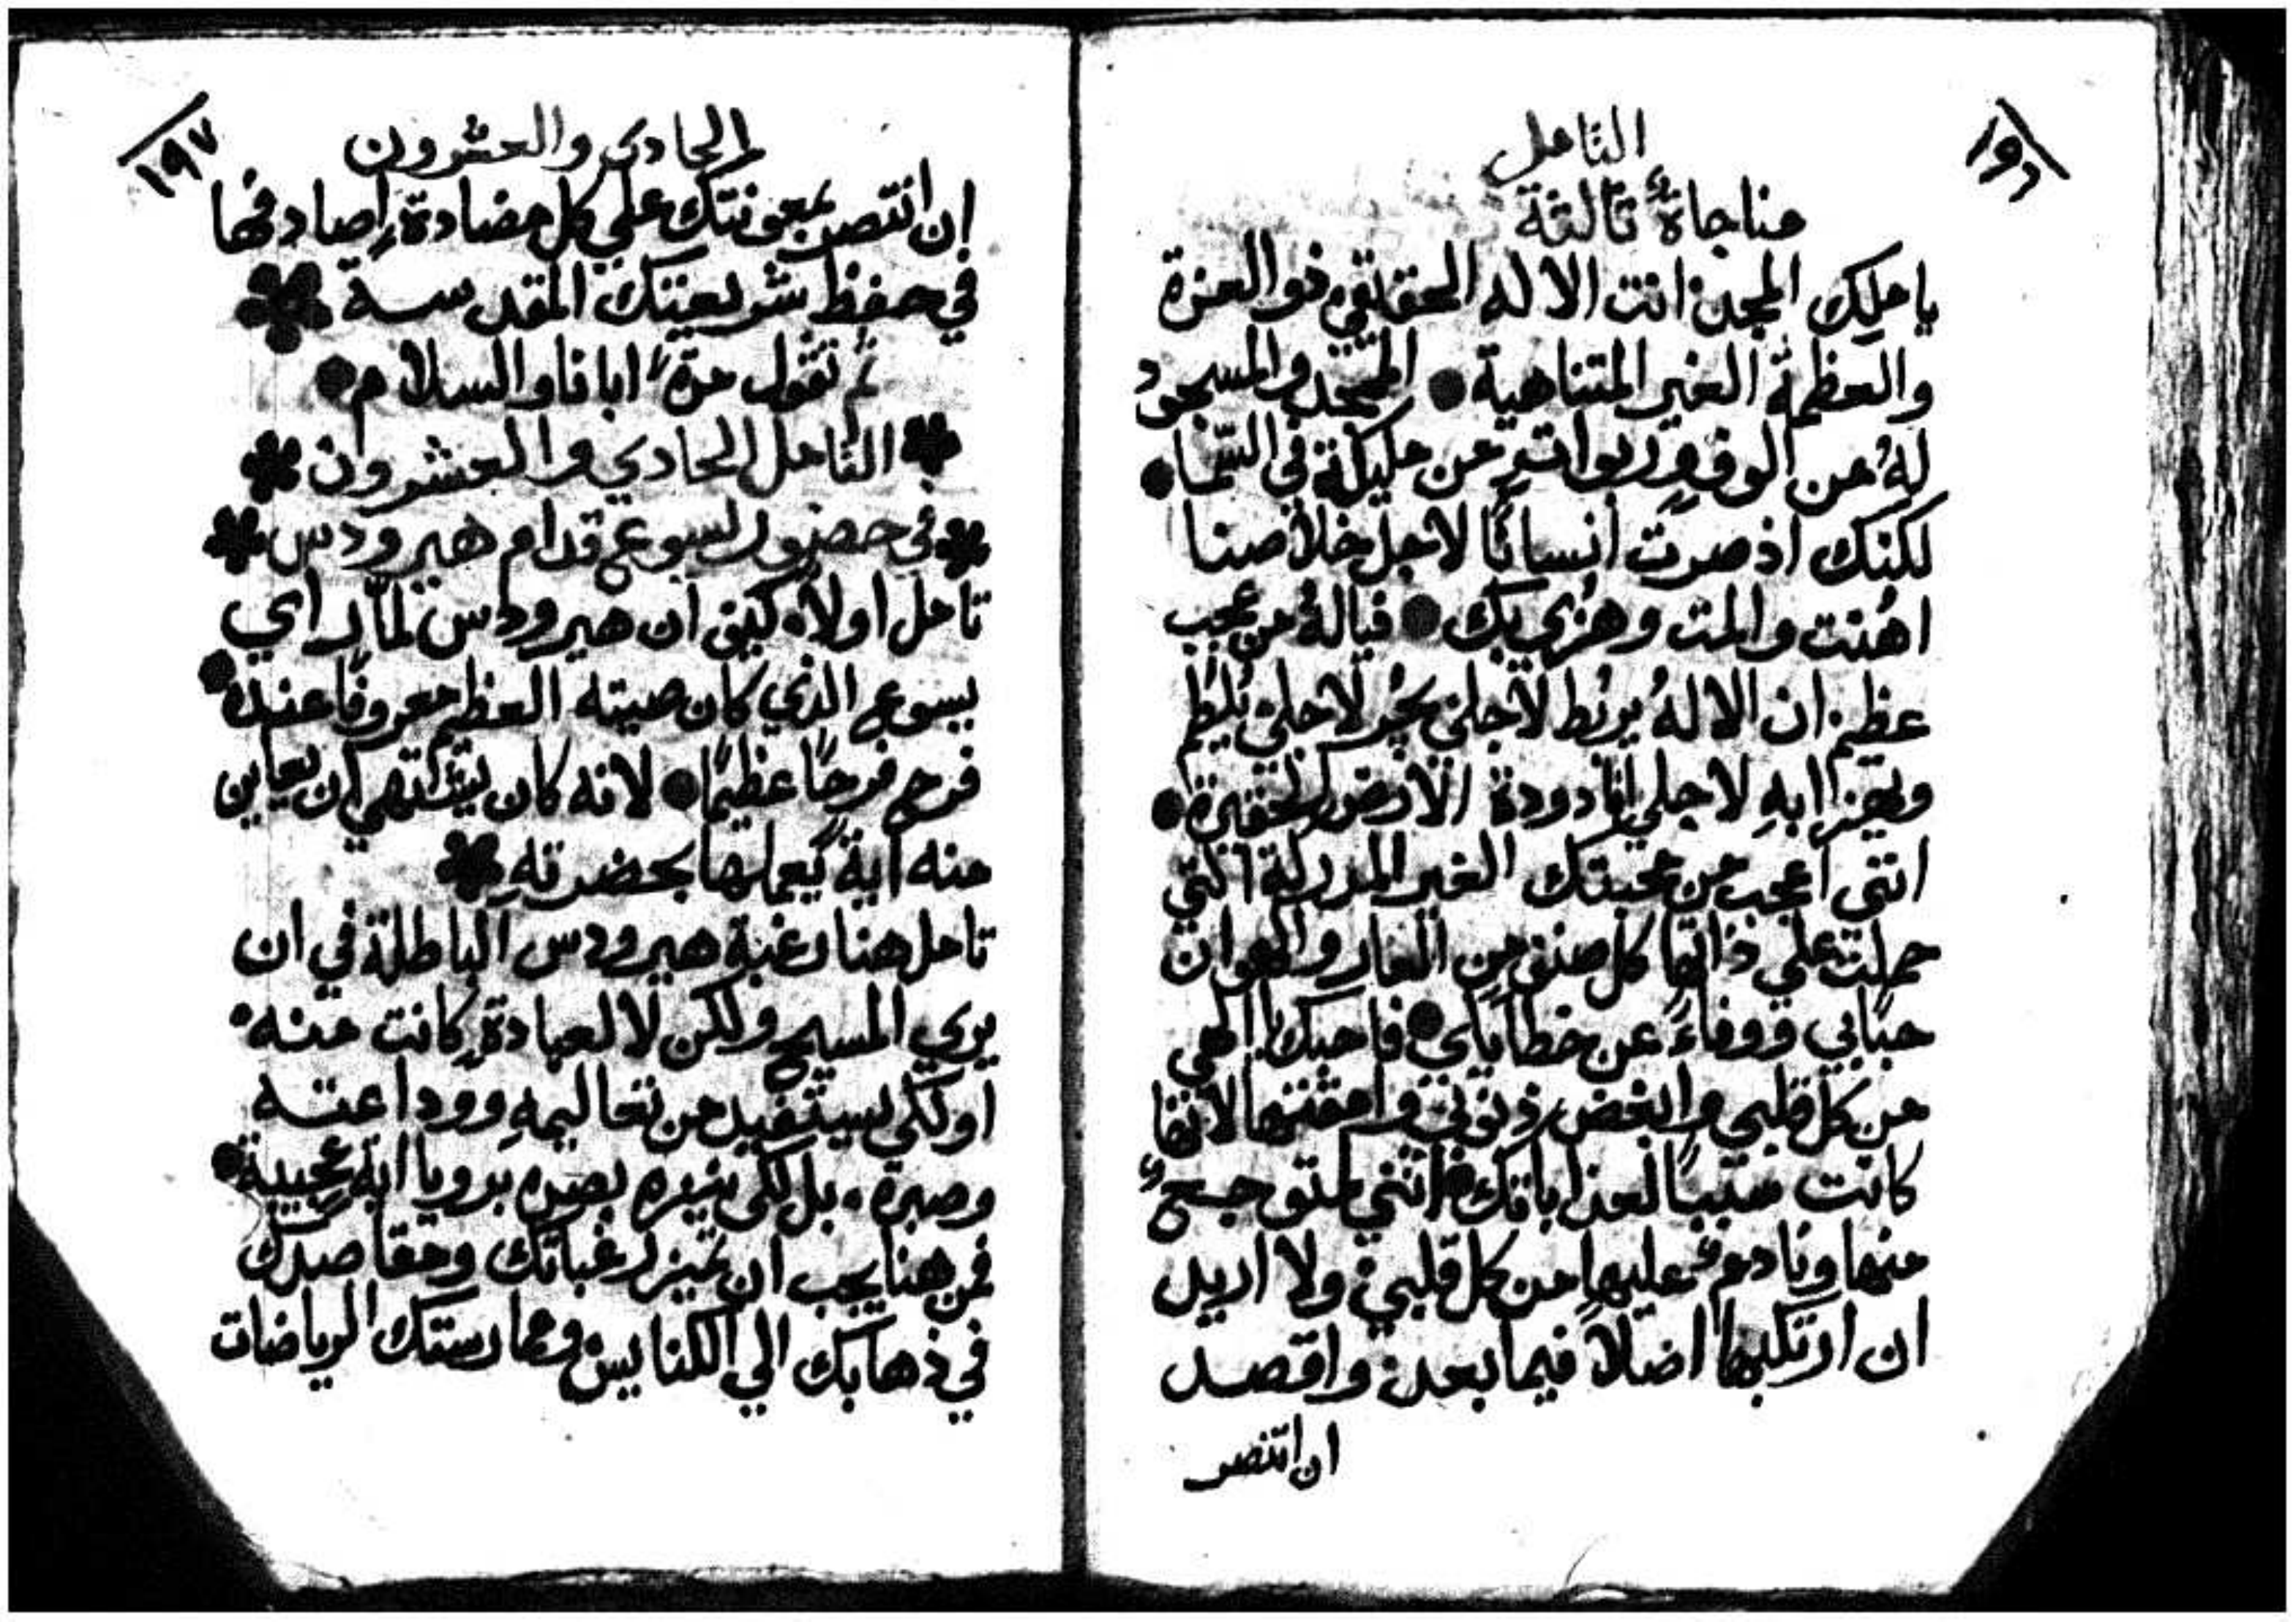 ١٩٦
التامل
مناجاةٌ ثالثة
يا ملك المجد انت الاله الحقيقي ذو العزة
والعظمة الغير المتناهية ● الممجد والمسجود
لهُ من الوف وربوات من مليكة في السما ●
لكنك اذ صرت انسانًا لاجل خلاصنا
اهُنت والمت وهزي بك ● فيالهُ من عجب
عظيم ان الالهُ يربُط لاجلي يُجر لاجلي يُلطم
ويهزا به لاجلي انا دودة الارض الحقيرة ●
انني اعجب من محبتك الغير المدركة التي
حملت علي ذاتها كل صنف من العار والهوان
حبًا بي ووفاءً عن خطاياي ● فاحبك يا الهي
من كل قلبي وابغض ذنوبي وامقتها لانها
كانت سببًا لعذاباتك ● انني متوجعٌ
منها ونادمٌ عليها من كل قلبي ولا اريد
ان ارتكبها اصلاً فيما بعد واقصد
ان انتصر
١٩٧
الحادي والعشرون
ان انتصر بمعونتك علي كل مضادةٍ اصادفها
في حفظ شريعتك المقدسة
ثم تقول مرةً ابانا والسلام ●
التامل الحادي والعشرون
في حضور يسوع قدام هيرودس
تامل اولاً كيف ان هيرودس لمّا راي
يسوع الذي كان صيته العظيم معروفًا عنده ●
فرح فرحًا عظيمًا ● لانه كان يشتهي ان يعاين
منه ايةً يعملها بحضرته
تامل هنا رغبة هيرودس الباطلة في ان
يري المسيح ولكن لا لعبادةٍ كانت منه
او لكي يستفيد من تعاليمه ووداعته
وصبره . بل لكي ينزه بصره برويا اية عجيبة ●
فمن هنا يجب ان تميز رغباتك ومقاصدك
في ذهابك الي الكنايس وممارستك الرياضات